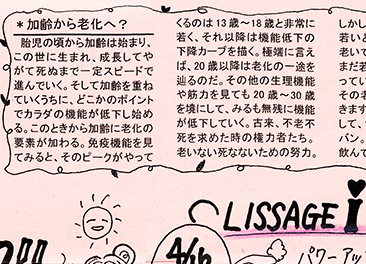 *加齢から老化へ?
胎児の頃から加齢は始まり、
この世に生まれ、成長してや
がて死ぬまで一定スピードで
進んでいく。そして加齢を重ね
ていくうちに、どこかのポイント
でカラダの機能が低下し始め
る。このときから加齢に老化の
要素が加わる。免疫機能を見
てみると、そのピークがやって
くるのは13歳~18歳と非常に
若く、それ以降は機能低下の
下降カーブを描く。極端に言え
ば、20歳以降は老化の一途を
辿るのだ。その他の生理機能
や筋力を見ても20歳~30歳
を境にして、みるも無残に機能
が低下していく。古来、不老不
死を求めた時の権力者たち。
老いない死なないための努力。
しかし
若いと
老いて
まだ若
ってい
その老
きます
して、
バン。
飲んて
LISSAGE i
4/16
パワーアッ